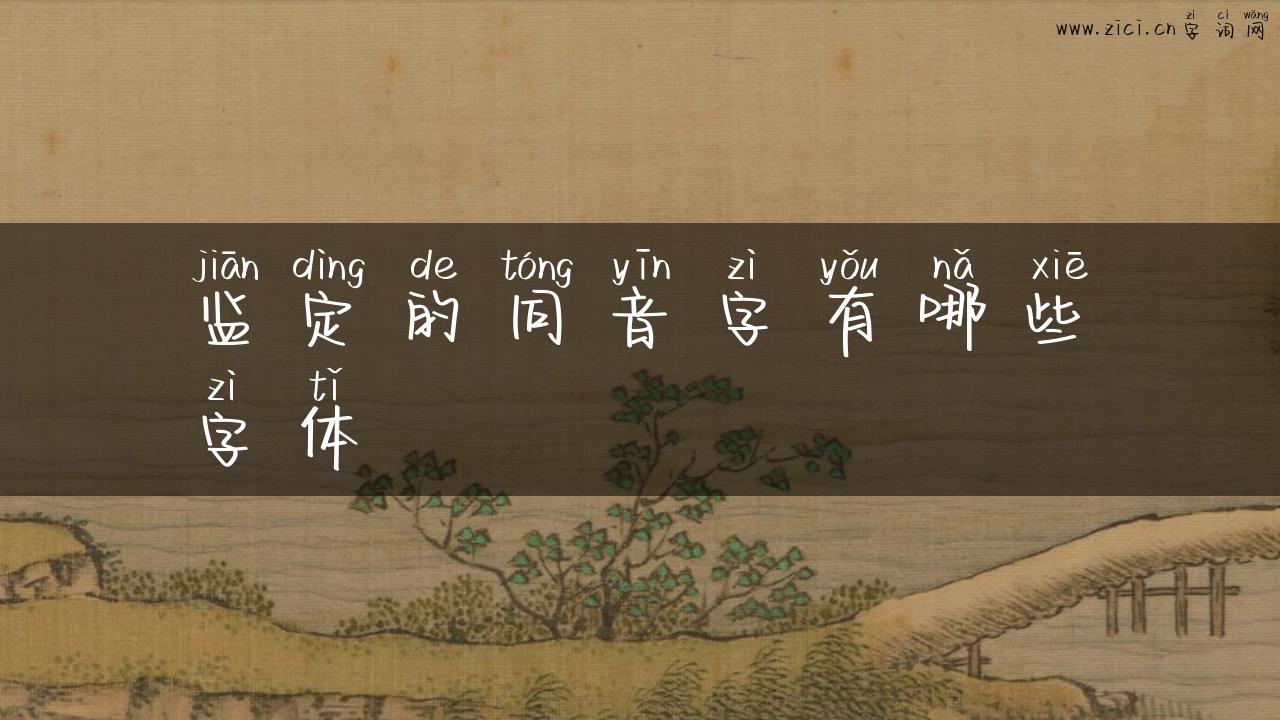 zì cí wǎng
www.zici.cn 字词网
jiān dìng de tóng yīn zì yǒu nǎ xiē
监定的同音字有哪些
zì tǐ
字体